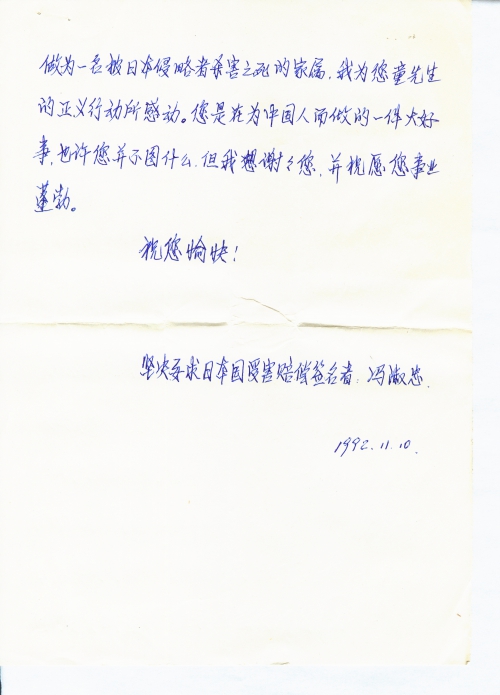 做为一名被日本侵略者杀害之死的家属，我为您童先生
的正义行动所感动。您是在为中国人而做的一件大好
事，也许您并不图什么，但我想谢谢您，并祝愿您事业
蓬勃。
祝您愉快！
坚决要求日本国受害赔偿签名者：冯淑
1992.11.10.